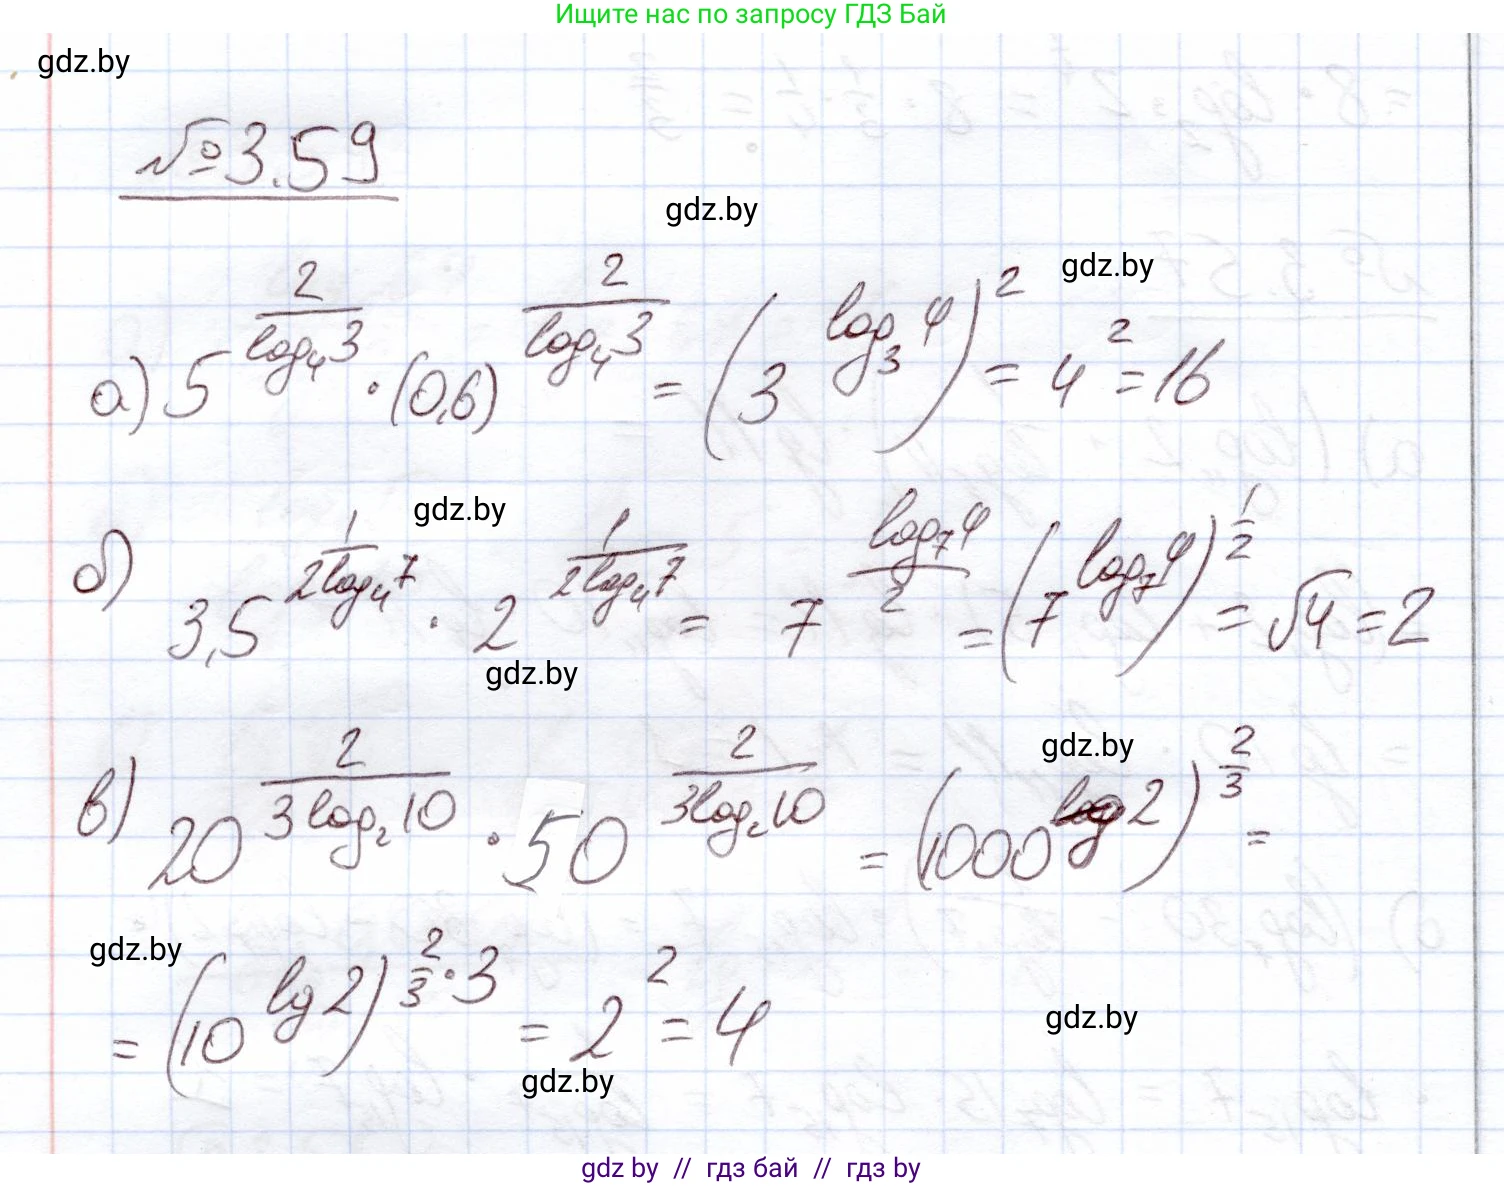 Ищите нас по запросу ГДЗ Бай
gdz.by
№3.59
gdz.by
gdz.by
а) 5^(2/log₄3) · (0,6)^(2/log₄3) = (3^(log₃4))² = 4² = 16
gdz.by
б) 3,5^(1/(2log₄7)) · 2^(1/(2log₄7)) = 7^(log₇4/2) = (7^(log₇4))^(1/2) = √4 = 2
gdz.by
gdz.by
в) 20^(2/(3log₂10)) · 50^(2/(3log₂10)) = (1000^(lg2))^(2/3) =
gdz.by
= (10^(lg2))^(2/3 · 3) = 2² = 4
gdz.by
gdz.by
gdz by // гдз бай // гдз by